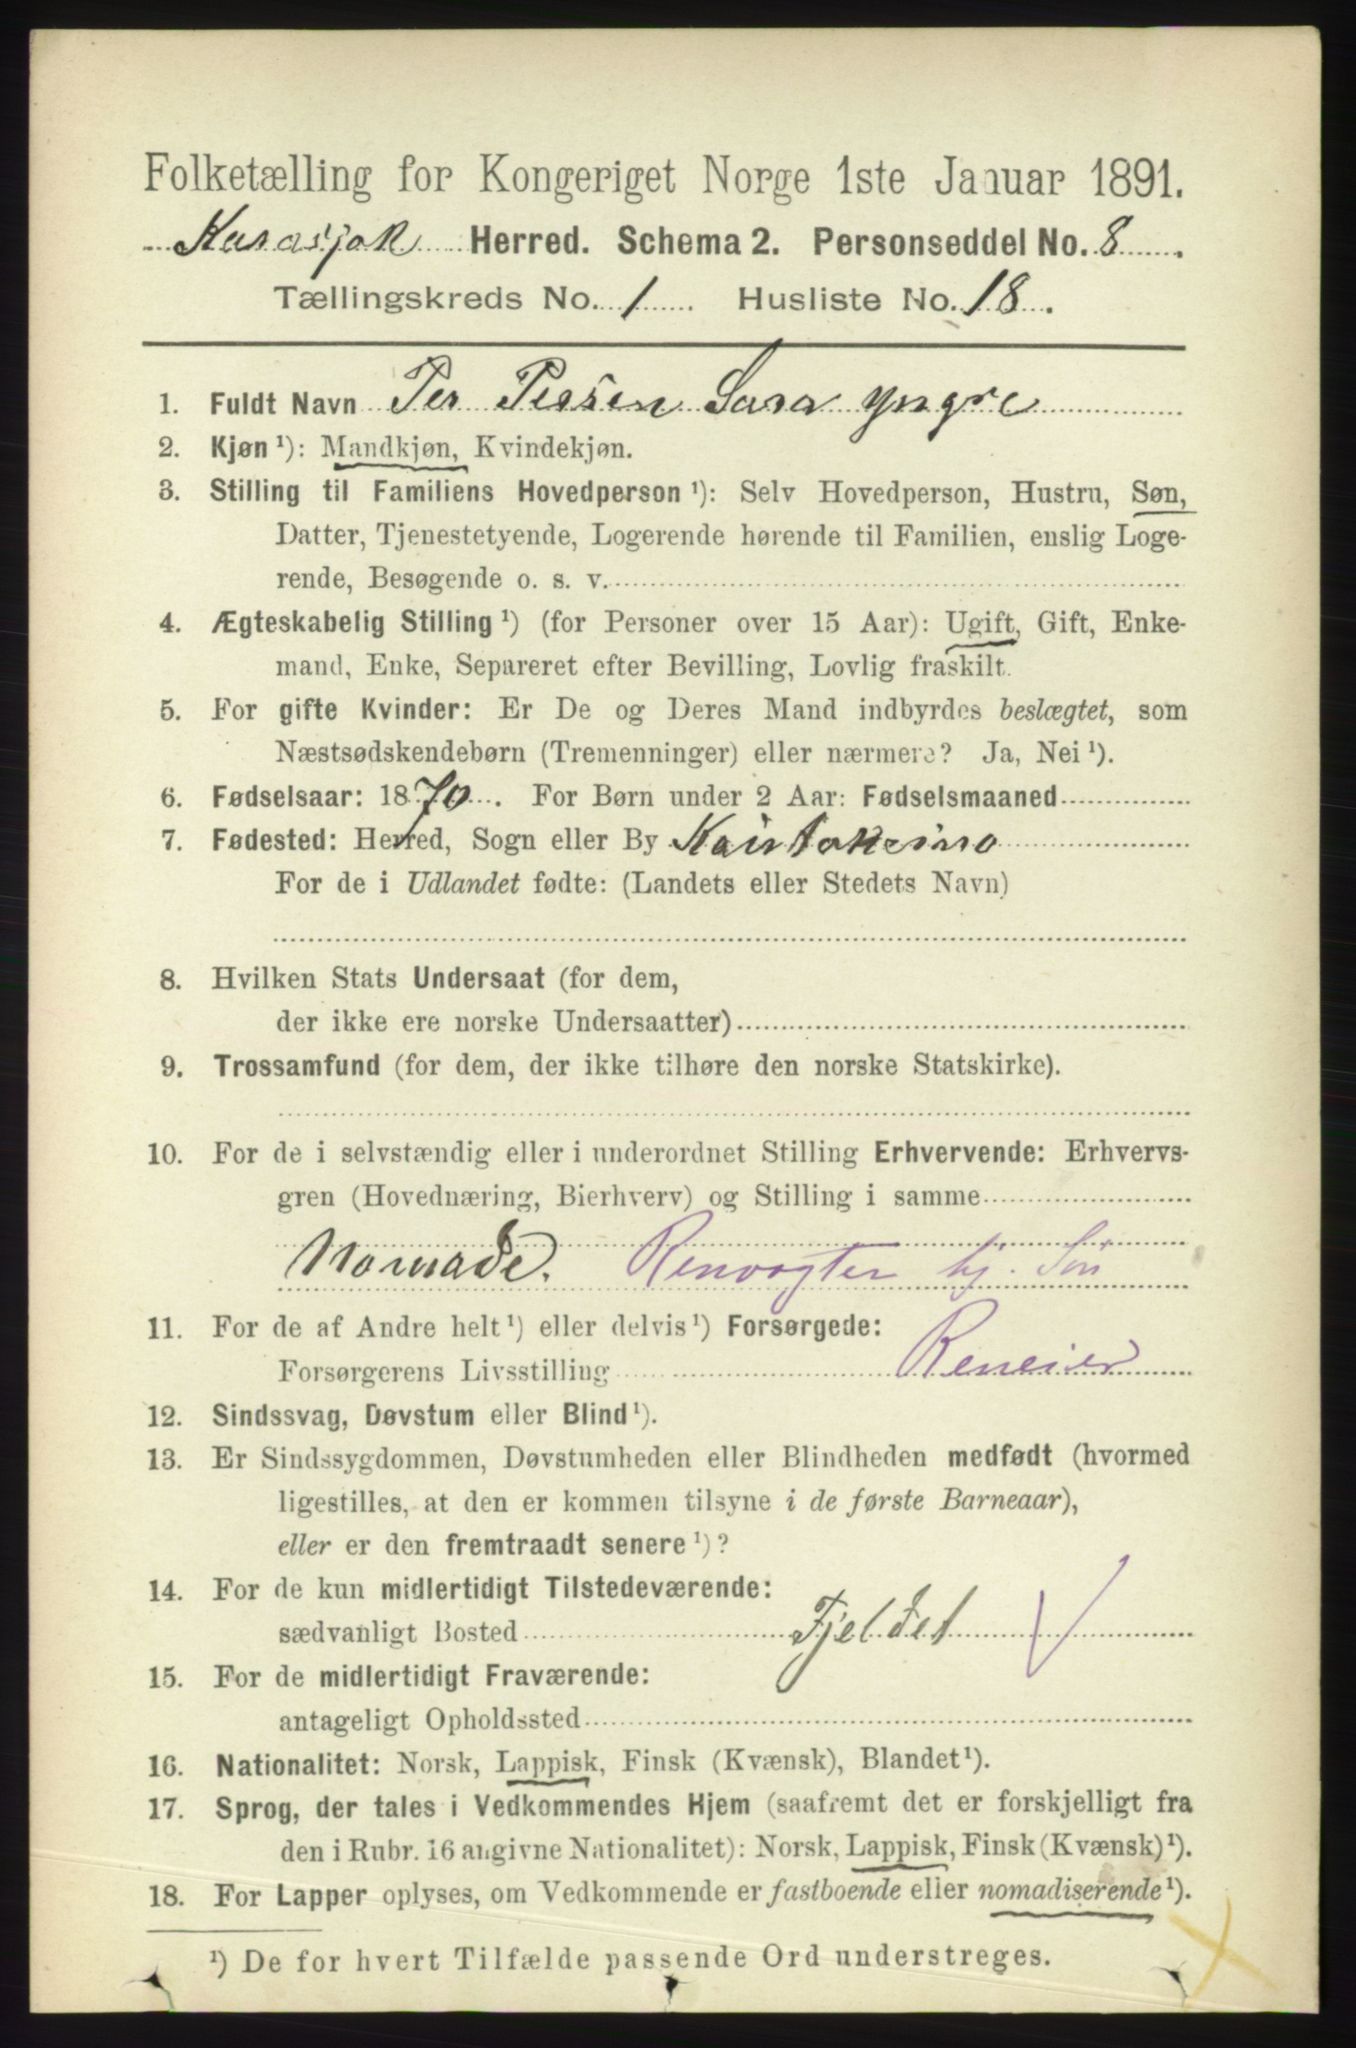 Folketælling for Kongeriget Norge 1ste Januar 1891.
Karasjok Herred. Schema 2. Personseddel No. 8.
Tællingskreds No. 1 Husliste No. 18.
1. Fuldt Navn Per Persen Sara yngre
2. Kjøn ¹): Mandkjøn, Kvindekjøn.
3. Stilling til Familiens Hovedperson ¹): Selv Hovedperson, Hustru, Søn,
Datter, Tjenestetyende, Logerende hørende til Familien, enslig Loge-
rende, Besøgende o. s. v.
4. Ægteskabelig Stilling ¹) (for Personer over 15 Aar): Ugift, Gift, Enke-
mand, Enke, Separeret efter Bevilling, Lovlig fraskilt.
5. For gifte Kvinder: Er De og Deres Mand indbyrdes beslægtet, som
Næstsødskendebørn (Tremenninger) eller nærmere? Ja, Nei ¹).
6. Fødselsaar: 1870. For Børn under 2 Aar: Fødselsmaaned
7. Fødested: Herred, Sogn eller By Kautokeino
For de i Udlandet fødte: (Landets eller Stedets Navn)
8. Hvilken Stats Undersaat (for dem,
der ikke ere norske Undersaatter)
9. Trossamfund (for dem, der ikke tilhøre den norske Statskirke).
10. For de i selvstændig eller i underordnet Stilling Erhvervende: Erhvervs-
gren (Hovednæring, Bierhverv) og Stilling i samme
Nomade. Renvogter hj. Søn
11. For de af Andre helt ¹) eller delvis ¹) Forsørgede:
Forsørgerens Livsstilling Reneier
12. Sindssvag, Døvstum eller Blind ¹).
13. Er Sindssygdommen, Døvstumheden eller Blindheden medfødt (hvormed
ligestilles, at den er kommen tilsyne i de første Barneaar),
eller er den fremtraadt senere ¹)?
14. For de kun midlertidigt Tilstedeværende:
sædvanligt Bosted Fjeldet
15. For de midlertidigt Fraværende:
antageligt Opholdssted
16. Nationalitet: Norsk, Lappisk, Finsk (Kvænsk), Blandet ¹).
17. Sprog, der tales i Vedkommendes Hjem (saafremt det er forskjelligt fra
den i Rubr. 16 angivne Nationalitet): Norsk, Lappisk, Finsk (Kvænsk) ¹).
18. For Lapper oplyses, om Vedkommende er fastboende eller nomadiserende ¹).
¹) De for hvert Tilfælde passende Ord understreges.